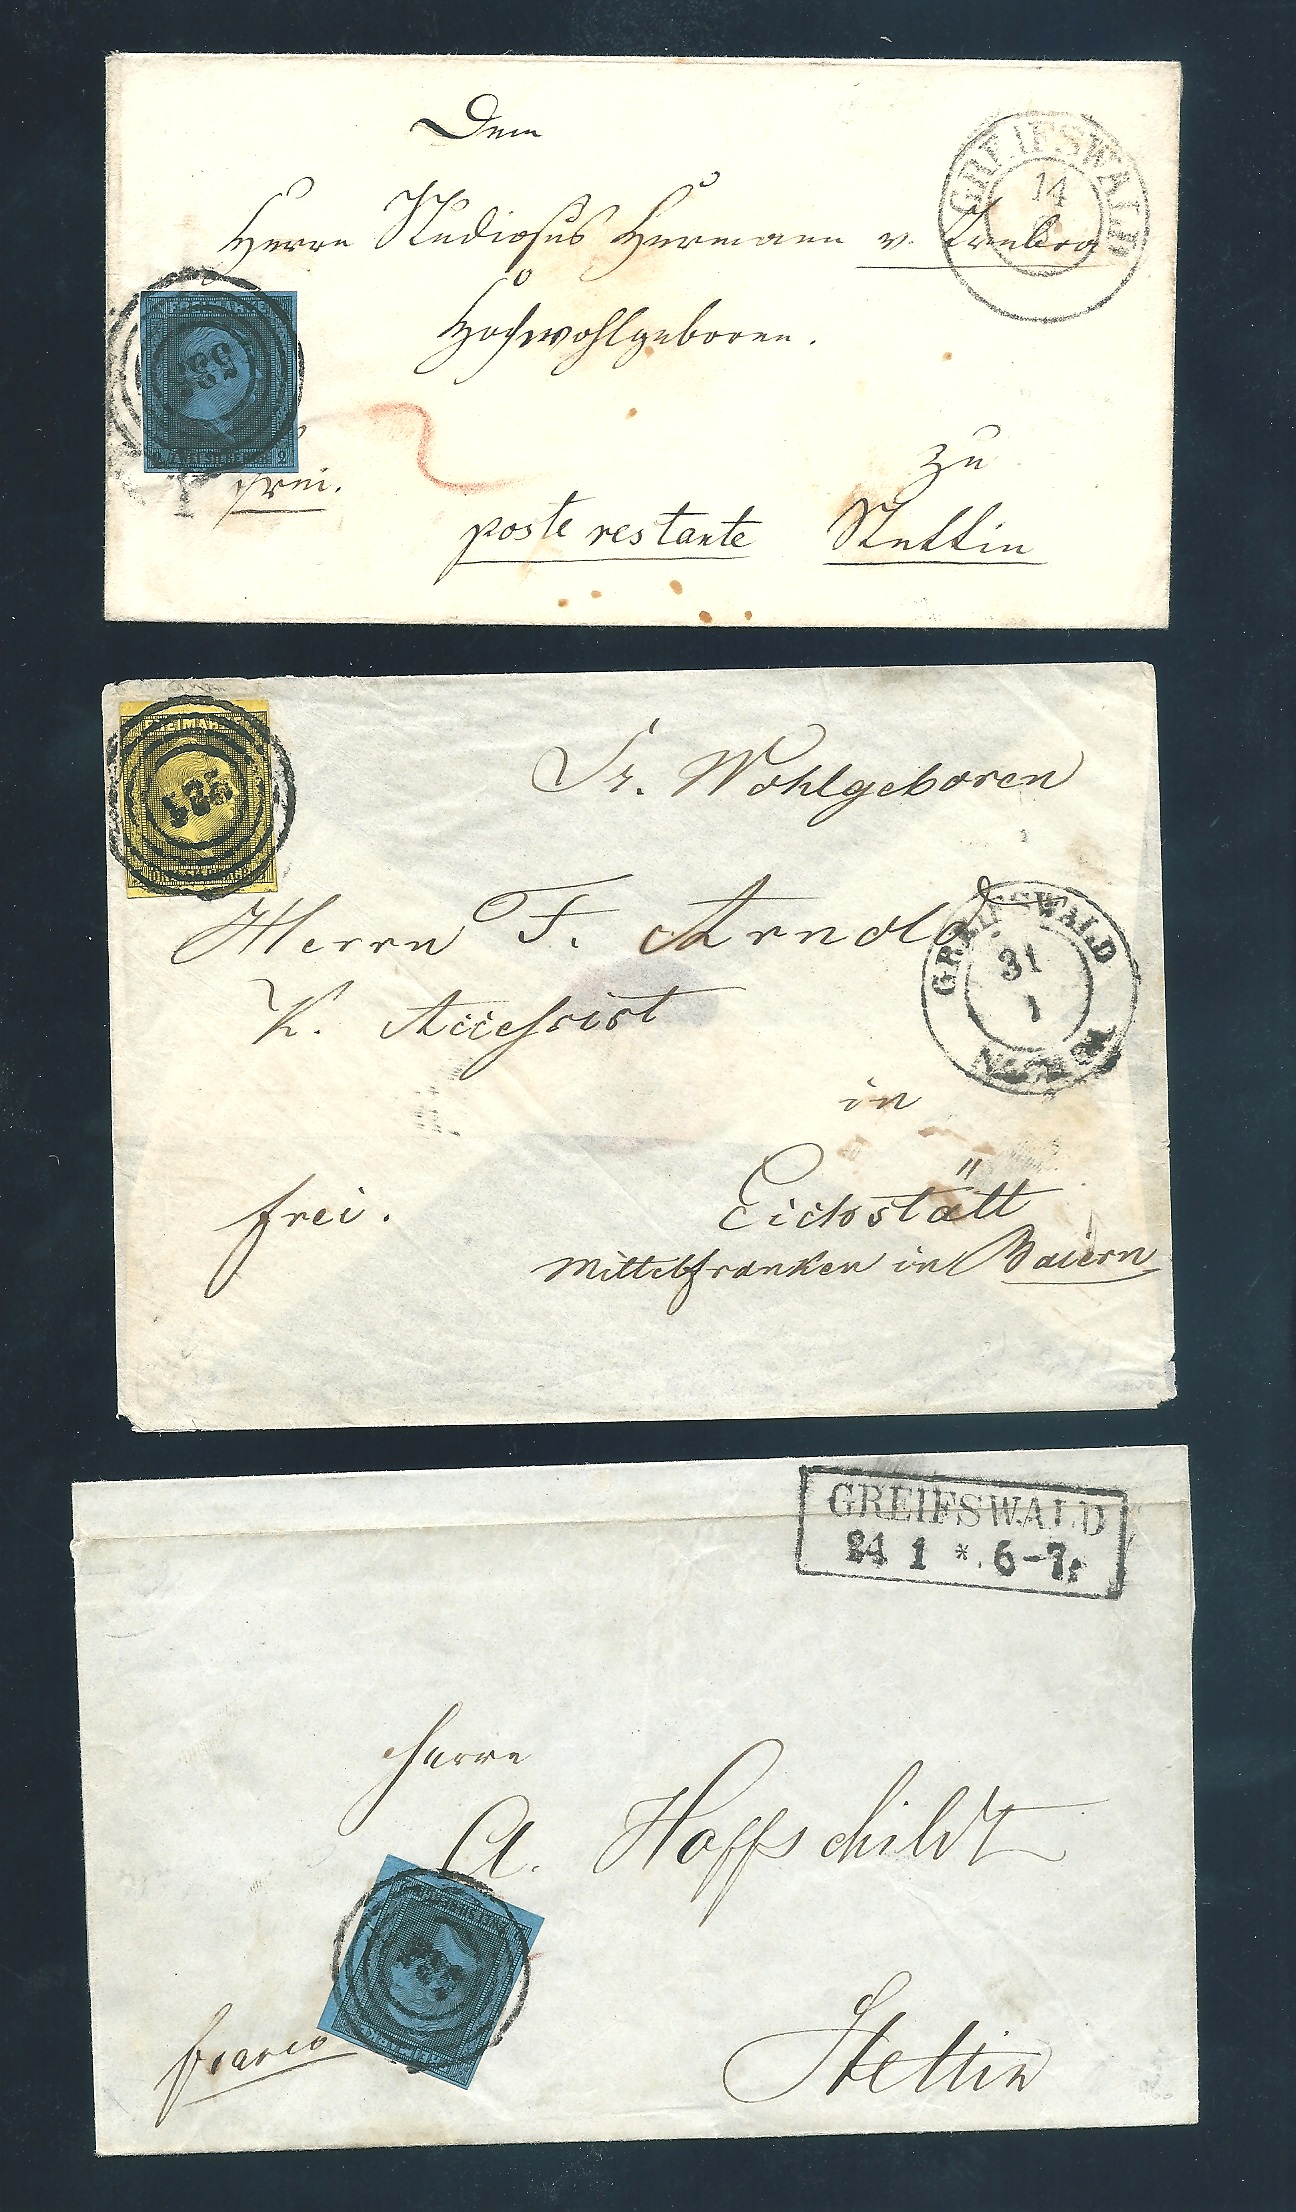 Dem
GREIFSWALD
14
Herrn Studiosus Hermann v.
Hochwohlgeboren.
FREIMARKE
ZWEI SILBERGR. 2
frei.
zu
poste restante Stettin
FREIMARKE
Sr. Wohlgeboren
Herrn F. Arnold
GREIFSWALD
31
1
K. Accessist
in
frei.
Eichstätt
Mittelfranken in Baiern
GREIFSWALD
24 1 *. 6-7
Herrn
A. Hoffschildt
franco
Stettin